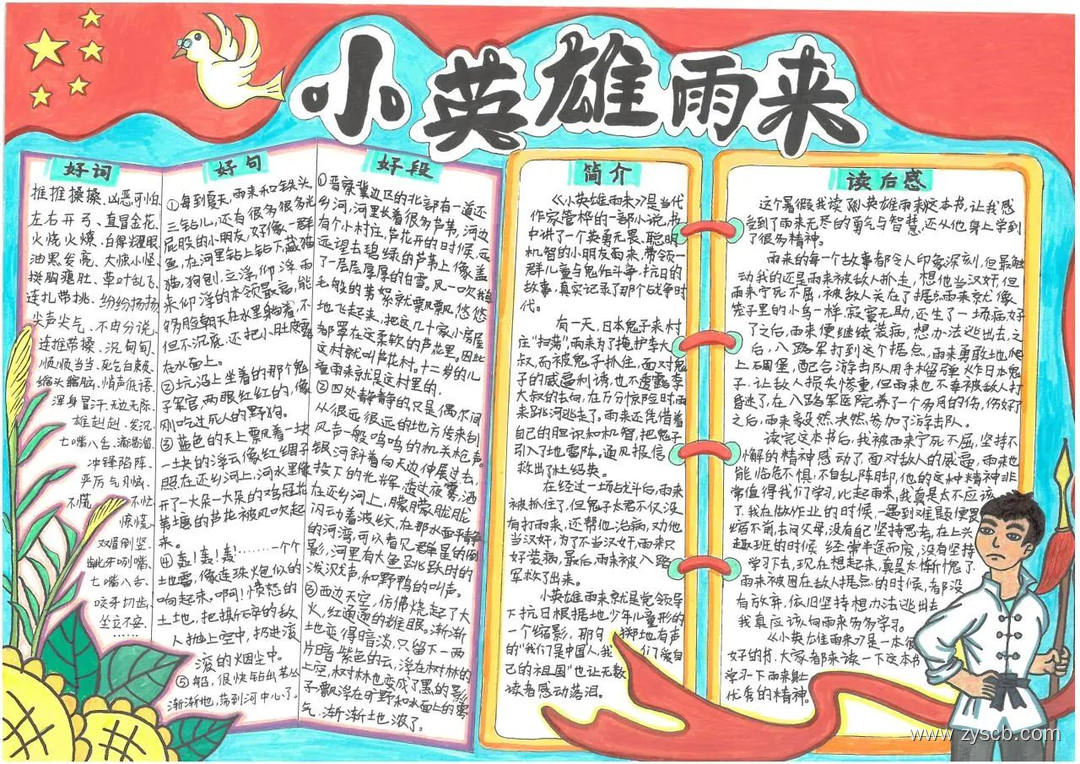 小英雄雨来
好词
推推搡搡、凶恶可怕
左右开弓、直冒金花
火烧火燎、白得耀眼
油黑发亮、大惊小怪
拱胸瘦肚、草叶乱飞
连扎带挑、纷纷扬扬
尖声尖气、不由分说
连推带搡、泥匍匍
顺顺当当、死乞白赖
缩头缩脑、悄声低语
浑身冒汗、无边无际
雄赳赳、笑沉
七嘴八舌、滴滴溜
冲锋陷阵、
严厉气惧、
不慌 不忙
慌慌
双眉倒坚、
龇牙咧嘴、
七嘴八舌、
咬牙切齿、
坐立不安、
……
好句
①每到夏天，雨来和铁头
三钻儿，还有很多很多光
屁股的小朋友，好像一群
鱼，在河里钻上钻下，藏猫
猫，狗刨，立浮，仰浮，雨
来仰浮的本领最高，能
够脸朝天在水里躺着，不
但不沉底，还把小肚皮露
在水面上。
②坑沿上坐着的那个鬼
子军官，两眼红红的，像
刚吃过死人的野狗。
③蓝色的天上飘着一块
一块的浮云像红绸子
照在还乡河上，河水里像
开了一大朵一大朵的鸡冠花
苇塘的芦花被风吹起
来。
④轰！轰！轰！………一个个
地雷，像连珠炮似的
响起来，啊！愤怒的
土地，把撕碎的敌
人抛上空中，扔进滚
滚的烟尘中。
⑤船，很快钻出苇丛
渐渐地，荡到河中心了。
好段
①晋察冀边区的北部有一道还
乡河，河里长着很多芦苇，河边
有个小村庄，芦花开的时候，远
远望去碧绿的芦苇上像盖
了一层厚厚的白雪，风一吹鹅
毛般的苇絮就飘飘悠悠
地飞起来，把这几十家小房屋
都罩在这柔软的芦花里。因此
这村就叫芦花村。十二岁的儿
童雨来就是这村里的。
②四处静静的只是偶尔间
从很远很远的地方传来刮
风声一般呜呜的机关枪声。
银河斜着向天边伸展过去，
投下的光辉，透过夜雾，洒
在还乡河上，朦朦胧胧
闪动着波纹，在那水面平静
的河湾，可以看见群星的倒
影，河里有大鱼跳跃时的
泼沢声，和野鸭的叫声。
③西边天空，仿佛烧起了大
火，红通通的雄眼。渐渐
地变得暗淡，只留下一两
片暗紫色的云，浮在树林的
上空，杈树林也变成了黑的影
子散浮在旷野和水面上的雾
气，渐渐地浓了。
简介
《小英雄雨来》是当代
作家管桦的一部小说，书
中讲了一个英勇无畏、聪明
机智的小朋友雨来，带领一
群儿童与鬼作斗争，抗日的
故事，真实记录了那个战争时
代。
有一天，日本鬼子来村
庄“扫荡”，雨来为了掩护李大
叔，而被鬼子抓住，面对鬼
子的威逼利诱，也不透露李
大叔的去向，在万分惊险时雨
来跳河逃走了，雨来还凭借着
自己的胆识和机智，把鬼子
引入了地雷阵。通风报信，
救出了杜绍英。
在经过一场战斗后，雨来
被抓住了，但鬼子太君不仅没
有打雨来，还帮他治病，劝他
当汉奸，为了不当汉奸，雨来只
好装病，最后，雨来被八路
军救了出来。
小英雄雨来就是党领导
下抗日根据地，少年儿童形的
一个缩影，那句 掷地有声
的“我们是中国人，我 们爱自
己的祖国”也让无数
读者感动落泪。
读后感
这个暑假我读《小英雄雨来》这本书，让我感
受到了雨来无尽的勇气与智慧，还从他身上学到
了很多精神。
雨来的每一个故事都令人印象深刻，但最触
动我的还是雨来被敌人抓走，想他当汉奸，但
雨来宁死不屈，被敌人关在了据点，雨来就像
笼子里的小鸟一样，寂寞无助，还生了一场病，好
了之后，雨来便继续装病，想办法逃出去，之
后，八路军打到这个据点，雨来勇敢地爬
上碉堡，配合游击队用手榴弹炸日本鬼
子，让敌人损失惨重，但雨来也不幸被敌人打
昏迷了，在八路军医院养了一个多月的伤，伤好了
之后，雨来毅然决然参加了游击队。
读完这本书后，我被雨来宁死不屈，坚持不
懈的精神感动了，面对敌人的威逼，雨来也
能临危不惧，不自乱阵脚，他的这种精神非
常值得我们学习，比起雨来，我真是太不应该
了，我在做作业的时候，一遇到难题便畏
缩不前，去问父母，没有自己坚持思考，在上兴
趣班的时候，经常半途而废，没有坚持
学习下去，现在想起来，真是太惭愧了，
雨来被困在敌人据点的时候，都没
有放弃，依旧坚持想办法逃出去
我真应该向雨来多多学习。
《小英雄雨来》是一本很
好的书，大家都来读一下这本书
学习一下雨来身上
优秀的精神。
www.zyscb.com